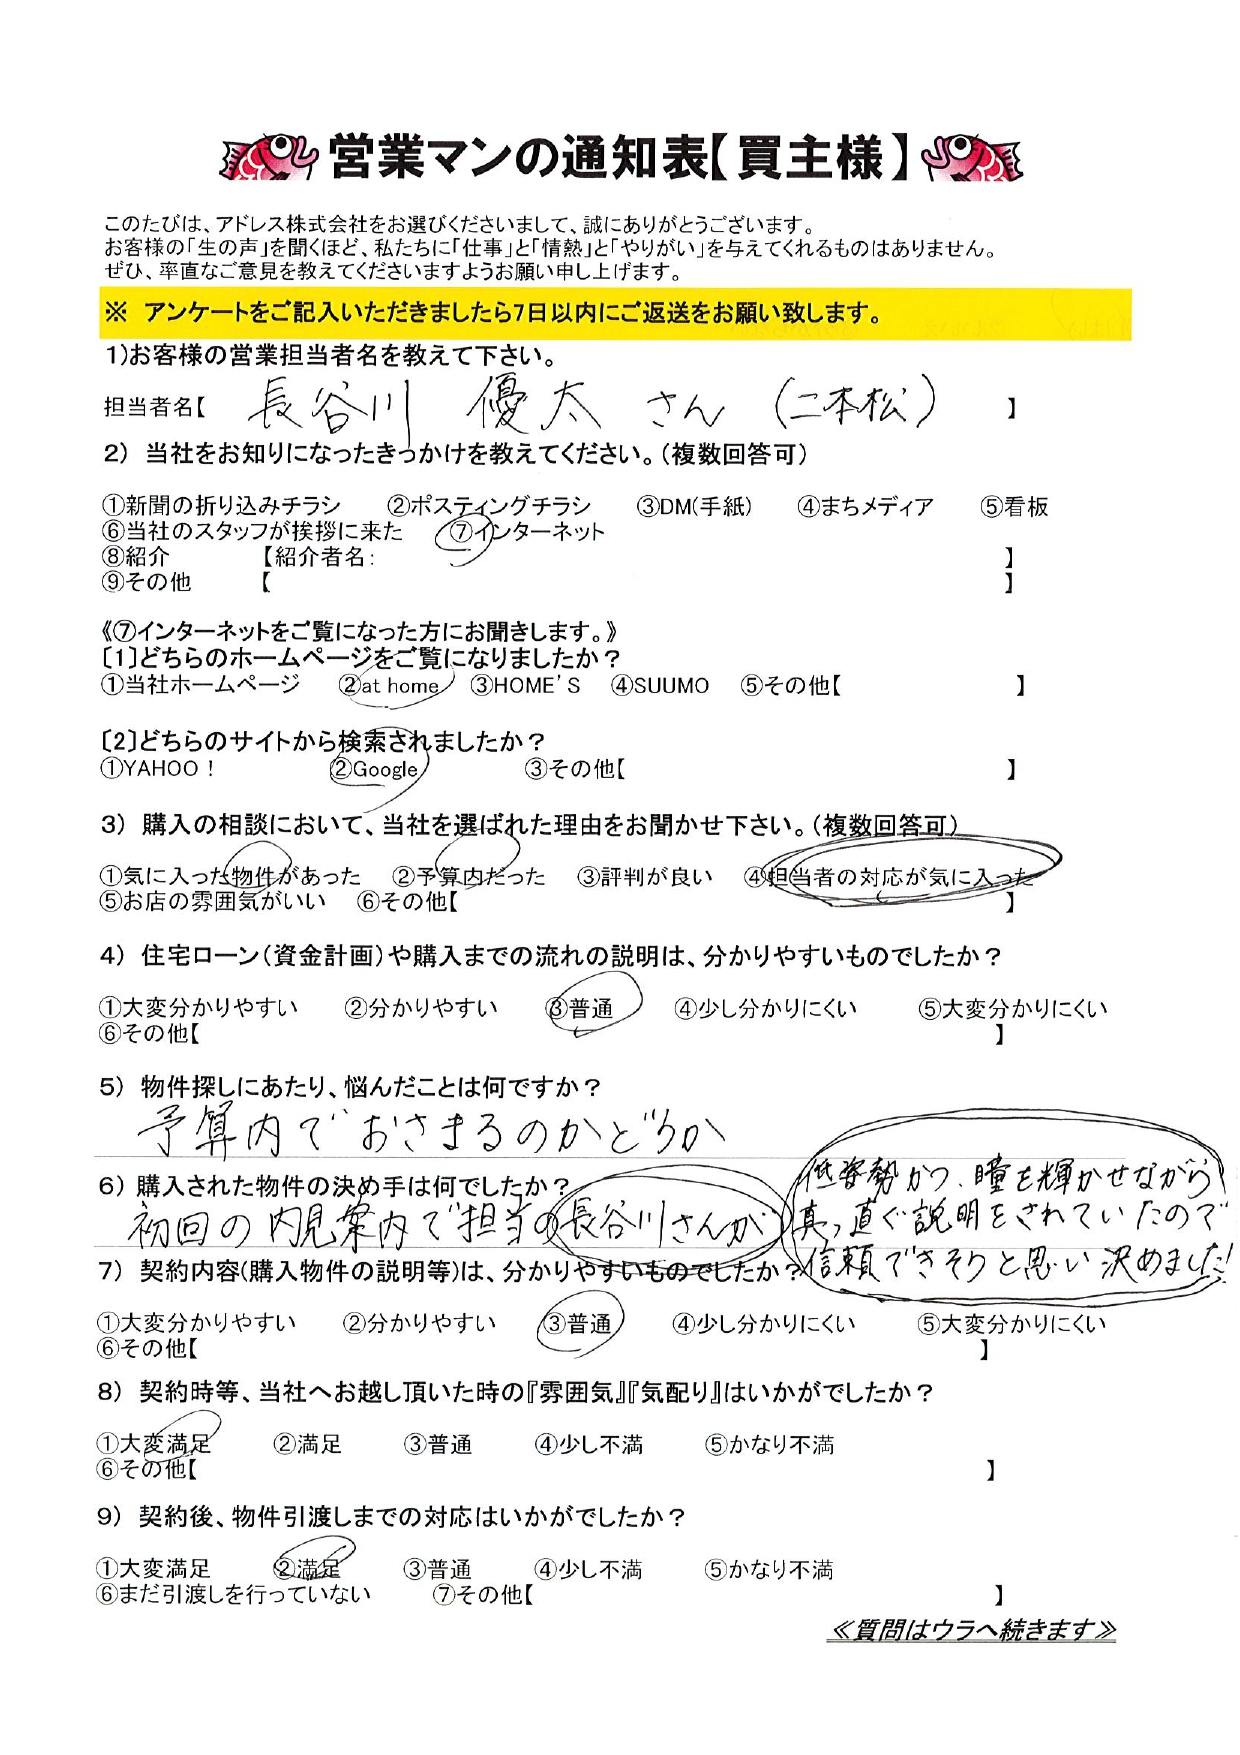 営業マンの通知表【買主様】
このたびは、アドレス株式会社をお選びくださいまして、誠にありがとうございます。
お客様の「生の声」を聞くほど、私たちに「仕事」と「情熱」と「やりがい」を与えてくれるものはありません。
ぜひ、率直なご意見を教えてくださいますようお願い申し上げます。
※ アンケートをご記入いただきましたら7日以内にご返送をお願い致します。
1)お客様の営業担当者名を教えて下さい。
担当者名【 長谷川 優太 さん (二本松) 】
2) 当社をお知りになったきっかけを教えてください。(複数回答可)
①新聞の折り込みチラシ ②ポスティングチラシ ③DM(手紙) ④まちメディア ⑤看板
⑥当社のスタッフが挨拶に来た ⑦インターネット
⑧紹介 【紹介者名: 】
⑨その他 【 】
《⑦インターネットをご覧になった方にお聞きします。》
〔1〕どちらのホームページをご覧になりましたか?
①当社ホームページ ②at home ③HOME'S ④SUUMO ⑤その他【 】
〔2〕どちらのサイトから検索されましたか?
①YAHOO! ②Google ③その他【 】
3) 購入の相談において、当社を選ばれた理由をお聞かせ下さい。(複数回答可)
①気に入った物件があった ②予算内だった ③評判が良い ④担当者の対応が気に入った
⑤お店の雰囲気がいい ⑥その他【 】
4) 住宅ローン(資金計画)や購入までの流れの説明は、分かりやすいものでしたか?
①大変分かりやすい ②分かりやすい ③普通 ④少し分かりにくい ⑤大変分かりにくい
⑥その他【 】
5) 物件探しにあたり、悩んだことは何ですか?
予算内でおさまるのかどうか
6) 購入された物件の決め手は何でしたか?
初回の内見案内で担当の長谷川さんが
低姿勢かつ、瞳を輝かせながら
真っ直ぐ説明をされていたので
信頼できそうと思い決めました!
7) 契約内容(購入物件の説明等)は、分かりやすいものでしたか?
①大変分かりやすい ②分かりやすい ③普通 ④少し分かりにくい ⑤大変分かりにくい
⑥その他【 】
8) 契約時等、当社へお越し頂いた時の『雰囲気』『気配り』はいかがでしたか?
①大変満足 ②満足 ③普通 ④少し不満 ⑤かなり不満
⑥その他【 】
9) 契約後、物件引渡しまでの対応はいかがでしたか?
①大変満足 ②満足 ③普通 ④少し不満 ⑤かなり不満
⑥まだ引渡しを行っていない ⑦その他【 】
≪質問はウラへ続きます≫